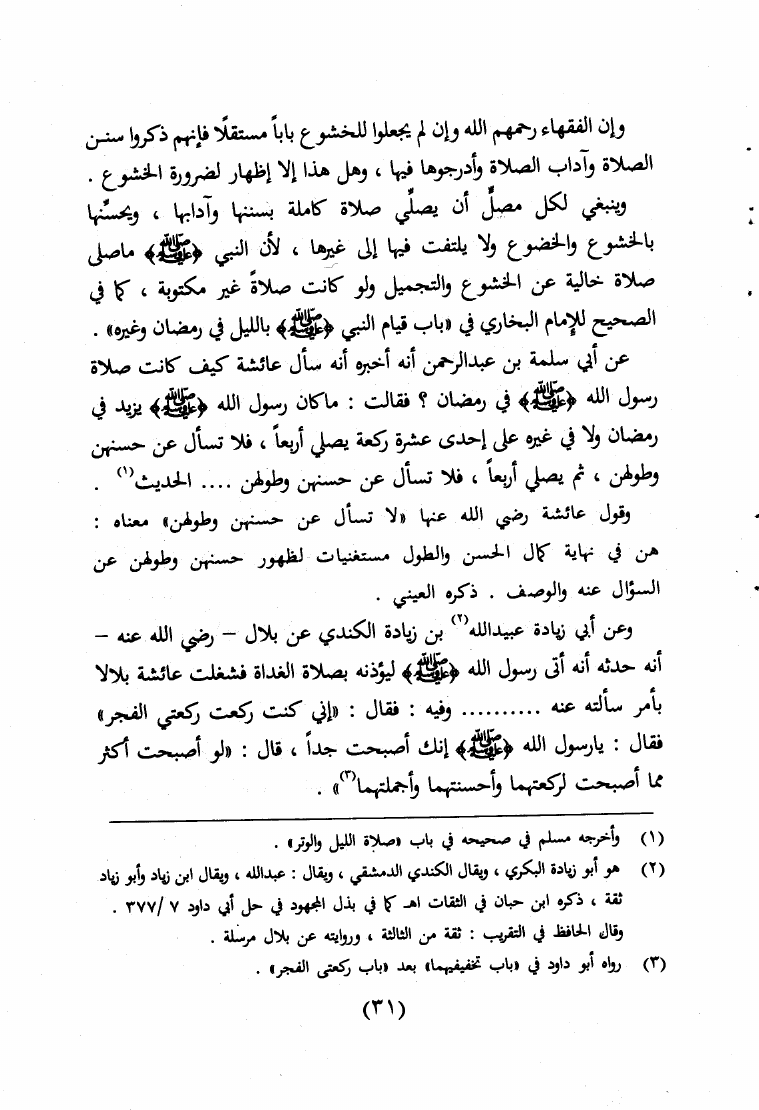 وإن الفقهاء رحمهم الله وإن لم يجعلوا للخشوع باباً مستقلًا فإنهم ذكروا سنن
الصلاة وآداب الصلاة وأدرجوها فيها ، وهل هذا إلا إظهار لضرورة الخشوع .
وينبغي لكل مصلٍّ أن يصلّي صلاة كاملة بسننها وآدابها ، ويحسّنها
بالخشوع والخضوع ولا يلتفت فيها إلى غيرها ، لأن النبي ﴿ﷺ﴾ ماصلى
صلاة خالية عن الخشوع والتجميل ولو كانت صلاةً غير مكتوبة ، كما في
الصحيح للإمام البخاري في «باب قيام النبي ﴿ﷺ﴾ بالليل في رمضان وغيره» .
عن أبي سلمة بن عبدالرحمن أنه أخبره أنه سأل عائشة كيف كانت صلاة
رسول الله ﴿ﷺ﴾ في رمضان ؟ فقالت : ماكان رسول الله ﴿ﷺ﴾ يزيد في
رمضان ولا في غيره على إحدى عشرة ركعة يصلي أربعاً ، فلا تسأل عن حسنهن
وطولهن ، ثم يصلي أربعاً ، فلا تسأل عن حسنهن وطولهن .... الحديث(١) .
وقول عائشة رضي الله عنها «لا تسأل عن حسنهن وطولهن» معناه :
هن في نهاية كمال الحسن والطول مستغنيات لظهور حسنهن وطولهن عن
السؤال عنه والوصف . ذكره العيني .
وعن أبي زيادة عبيدالله(٢) بن زيادة الكندي عن بلال – رضي الله عنه –
أنه حدثه أنه أتى رسول الله ﴿ﷺ﴾ ليؤذنه بصلاة الغداة فشغلت عائشة بلالا
بأمر سألته عنه .......... وفيه : فقال : «إني كنت ركعت ركعتي الفجر»
فقال : يارسول الله ﴿ﷺ﴾ إنك أصبحت جداً ، قال : «لو أصبحت أكثر
مما أصبحت لركعتهما وأحسنتهما وأجملتهما(٣)» .
(١) وأخرجه مسلم في صحيحه في باب «صلاة الليل والوتر» .
(٢) هو أبو زيادة البكري ، ويقال الكندي الدمشقي ، ويقال : عبدالله ، ويقال ابن زياد وأبو زياد
ثقة ، ذكره ابن حبان في الثقات اهـ كما في بذل المجهود في حل أبي داود ٧ /٣٧٧ .
وقال الحافظ في التقريب : ثقة من الثالثة ، وروايته عن بلال مرسلة .
(٣) رواه أبو داود في «باب تخفيفيهما» بعد «باب ركعتى الفجر» .
(٣١)